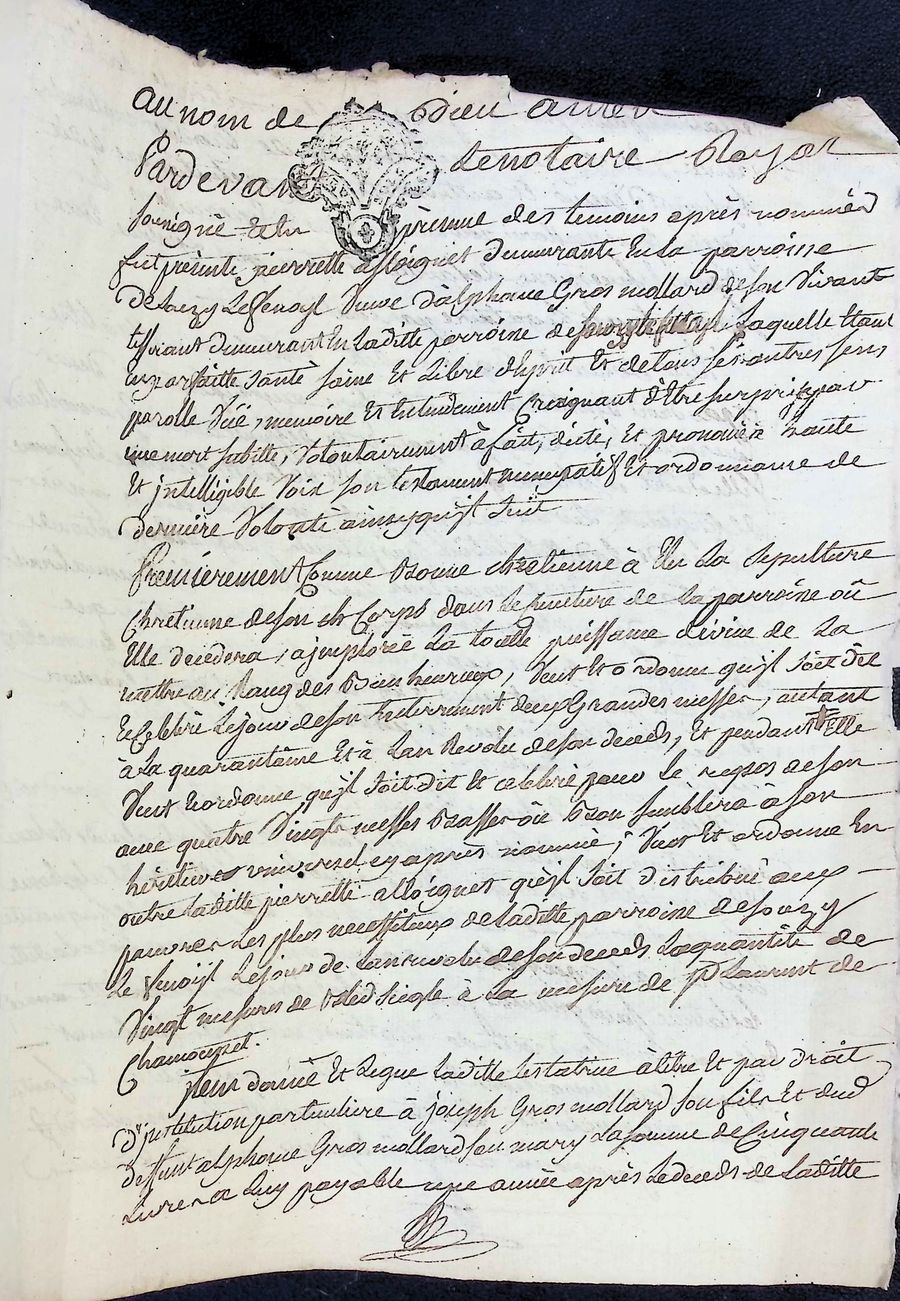 au nom de Dieu amen
Pardevant Le notaire Royal
soussigné et en présence des temoins après nommés
fut présente pierrette alloignet demeurante En la parroisse
De souzy Le fenoyl Veuve d'alphonse Gros mollard de son Vivant
tissérant demeurant En laditte parroisse de Laquelle Etant
En parfaitte santé saine Et Libre d'Esprit Et de tous ses autres sens
parolle Vüe, memoire Et Entendement Craignant d'Etre surprise par
une mort subitte, Volontairement à fait, dicté, Et prononcé à haute
Et jntelligible Voix son testament nuncupatif Et ordonnance de
derniere Volonté ainsy qu'jl suit
Premierement Comme Bonne chretienne à Elu La sepulture
Chretienne de son ch Corps dans Le cimetiere de La parroisse où
Elle decedera, a jmploré La toutte puissance divine de La
mettre au Rang des Bienheureux, Veut Et ordonne qu'jl soit dit
Et Celebré Le jour de son Enterrement deux Grandes messes, autant
à La quarantaine Et à L'an Revolu de son deceds, Et pendant Elle
Veut Et ordonne qu'jl soit dit Et celebré pour le repos de son
ame quatre Vingt messes Basses où Bon semblera à son
héritier universel cy après nommé; Veut Et ordonne En
outre Laditte pierrette alloignet qu'jl soit distribué aux
pauvres Les plus necessiteux de laditte parroisse de souzy
Le fenoyl Le jour de L'an revolu de son deceds La quantité de
Vingt mesures de Bled seigle à La mesure de St Laurent de
Chamousset.
jtem donne Et Legue Laditte testatrice à titre Et par droit
D'jnstitution particuliere à joseph Gros mollard son fils Et dud
deffunt alphonse Gros mollard son mary La somme de Cinquante
Livres a Luy payable une année après Le deceds de Laditte